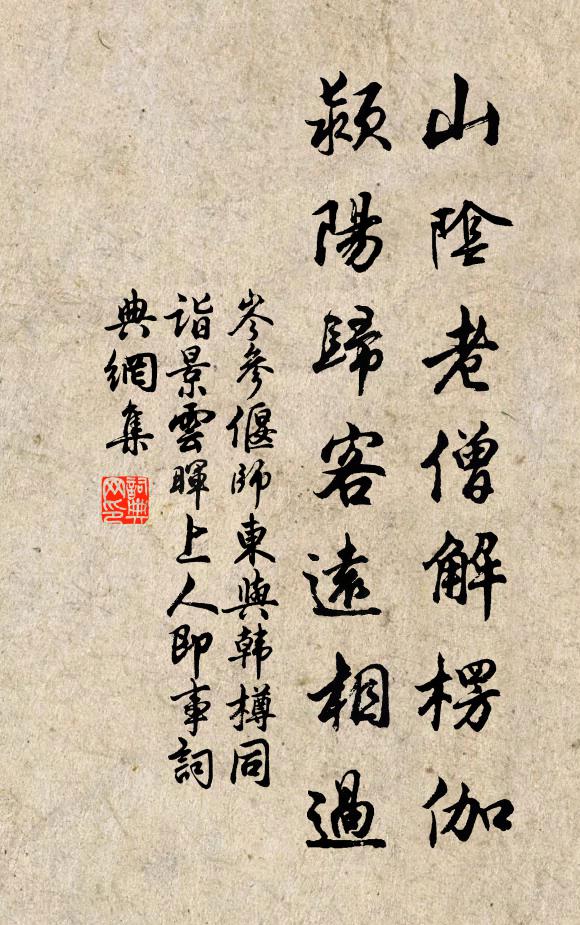 山陰老僧解楞伽
潁陽歸客遠相過
岑參偃師東與韓樽同
詣景雲暉上人即事詞
典網集
詞典網印